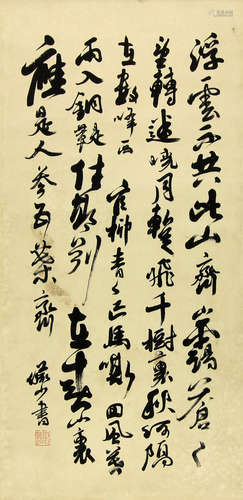 浮雲不共此山齊山靄蒼々
望轉迷曉月暫飛千樹裏秋河隔
在數峰西 官柳青々匹馬嘶回風暮
雨入銅鞮佳期別在春山裏
應是人參五葉齊 書